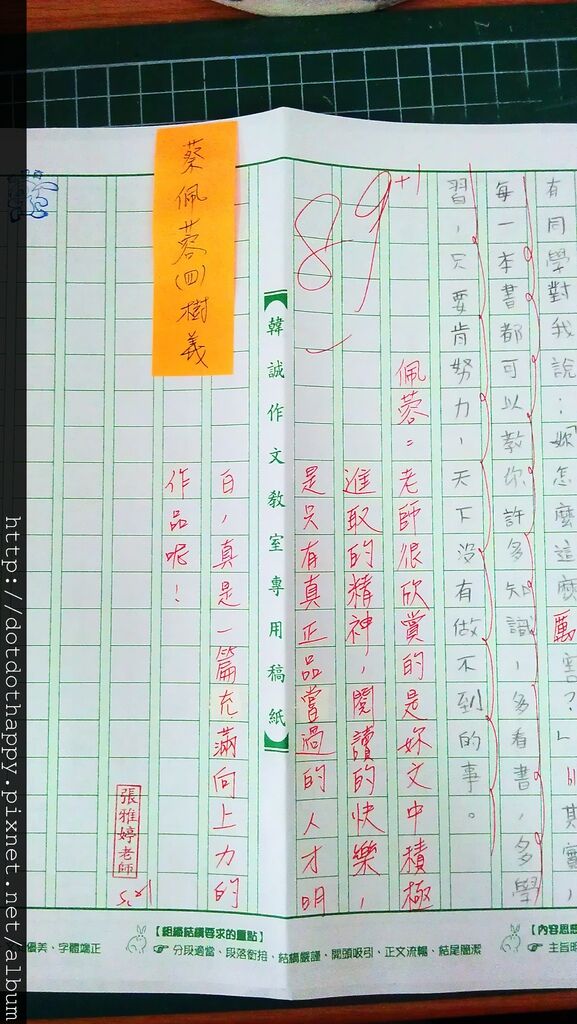 有同學對我說：妳怎麼這麼厲害？」其實，
每一本書都可以教你許多知識，多看書，多學
習，只要肯努力，天下沒有做不到的事。
佩蓉：老師很欣賞的是妳文中積極
進取的精神，閱讀的快樂，
是只有真正品嘗過的人才明
白，真是一篇充滿向上力的
作品呢！
89+1
張雅婷老師
韓誠作文教室專用稿紙
蔡佩蓉(四)樹義
優美、字體端正
【組織結構要求的重點】
分段適當、段落銜接、結構嚴謹、開頭吸引、正文流暢、結尾簡潔
【內容思想
主旨明
http://dotdothappy.pixnet.net/album